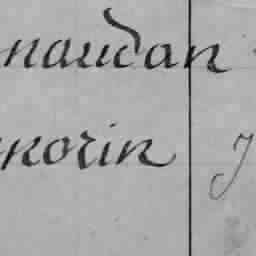 naudan
norin J